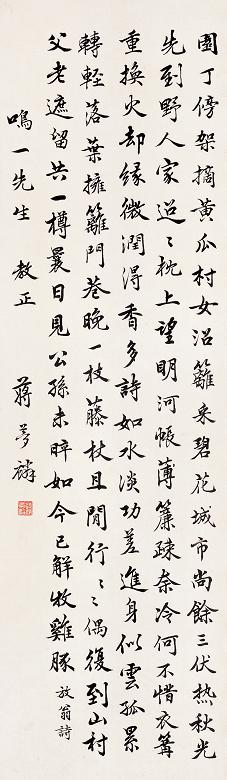 園丁傍架摘黃瓜村女沿籬采碧花城市尚餘三伏熱秋光
先到野人家迢〻枕上望明河帳薄簾疎奈冷何不惜衣篝
重換火却緣微潤得香多詩如水淡功差進身似雲孤累
轉輕落葉擁籬門巷晚一枝藤杖且閒行〻〻偶復到山村
父老遮留共一樽曩日見公孫未晬如今已解牧雞豚 放翁詩
鳴一先生 教正 蔣夢麟